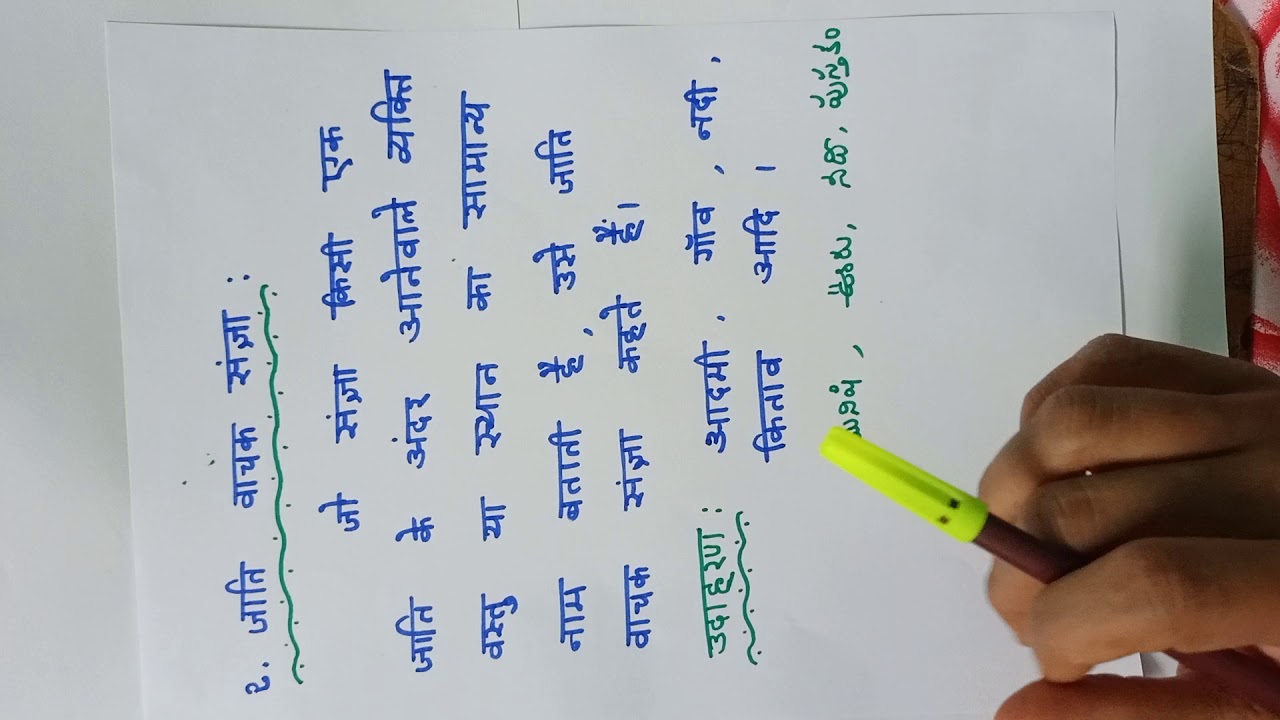 २. जाति वाचक संज्ञा :
जो संज्ञा किसी एक
जाति के अंदर आनेवाले व्यक्ति
वस्तु या स्थान का सामान्य
नाम बताती है, उसे जाति
वाचक संज्ञा कहते हैं।
उदाहरण : आदमी, गाँव, नदी,
किताब आदि ।
ಊರು, ನದಿ, ಪುಸ್ತಕಂ